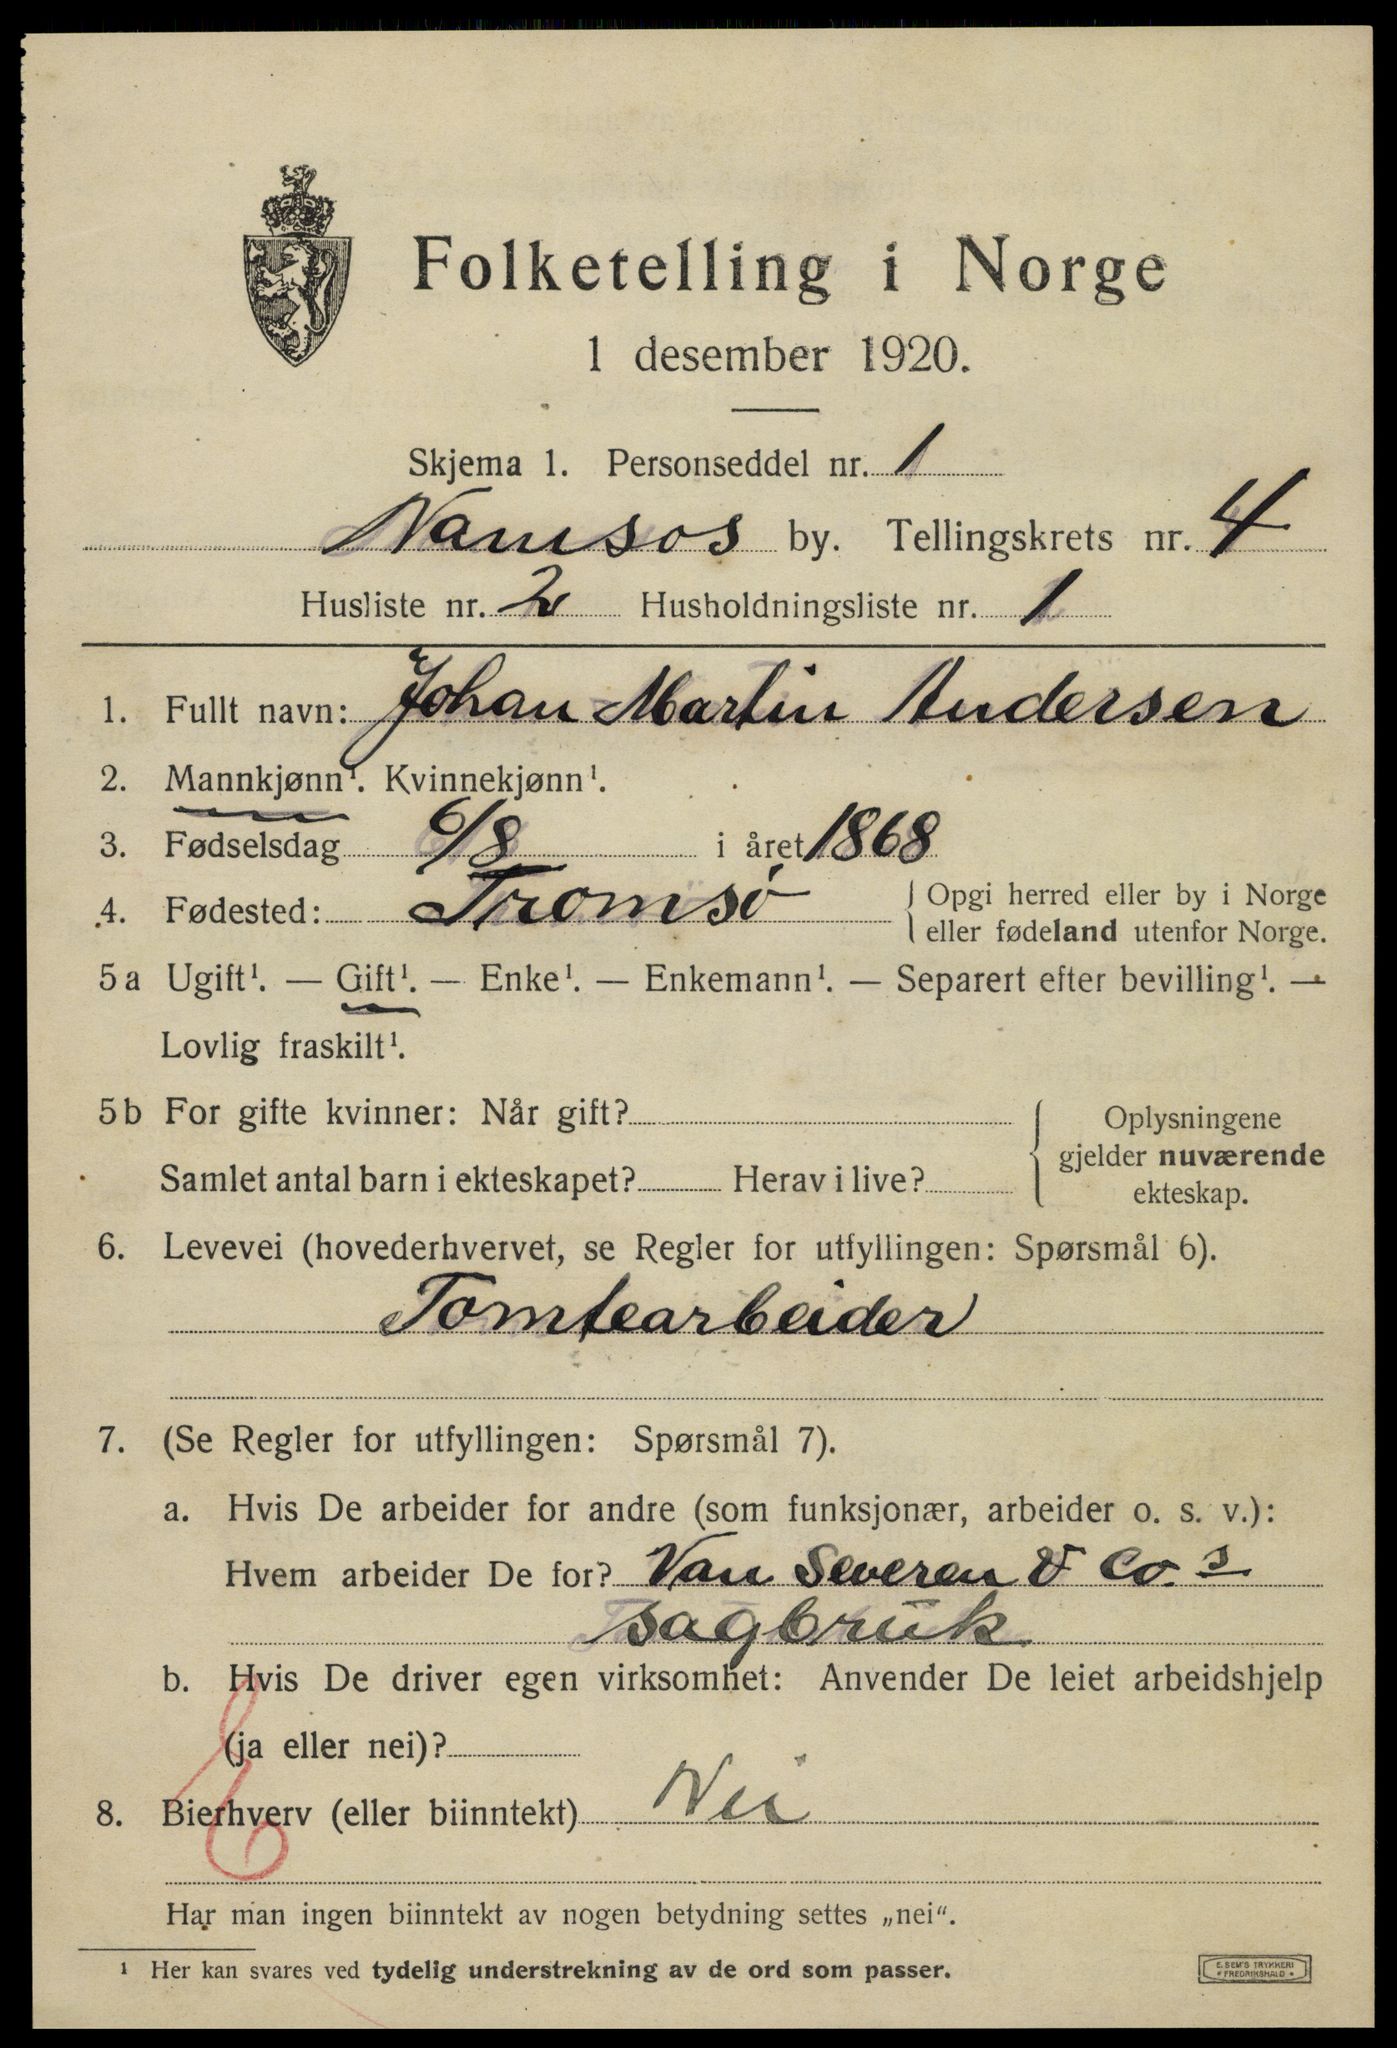 Folketelling i Norge
1 desember 1920.
Skjema 1. Personseddel nr. 1
Namsos by. Tellingskrets nr. 4
Husliste nr. 2 Husholdningsliste nr. 1
1. Fullt navn: Johan Martin Andersen
2. Mannkjønn¹. Kvinnekjønn¹.
3. Fødselsdag 6/8 i året 1868
4. Fødested: Tromsø { Opgi herred eller by i Norge
eller fødeland utenfor Norge.
5a Ugift¹. — Gift¹. — Enke¹. — Enkemann¹. — Separert efter bevilling¹. —
Lovlig fraskilt¹.
5b For gifte kvinner: Når gift?
Samlet antal barn i ekteskapet? Herav i live?
Oplysningene
gjelder nuværende
ekteskap.
6. Levevei (hovederhvervet, se Regler for utfyllingen: Spørsmål 6).
Tomtearbeider
7. (Se Regler for utfyllingen: Spørsmål 7).
a. Hvis De arbeider for andre (som funksjonær, arbeider o. s. v.):
Hvem arbeider De for? Van Severen & Co.s
sagbruk
b. Hvis De driver egen virksomhet: Anvender De leiet arbeidshjelp
(ja eller nei)?
8. Bierhverv (eller biinntekt) Nei
Har man ingen biinntekt av nogen betydning settes „nei“.
¹ Her kan svares ved tydelig understrekning av de ord som passer.
E. SEM'S TRYKKERI
* FREDRIKSHALD *